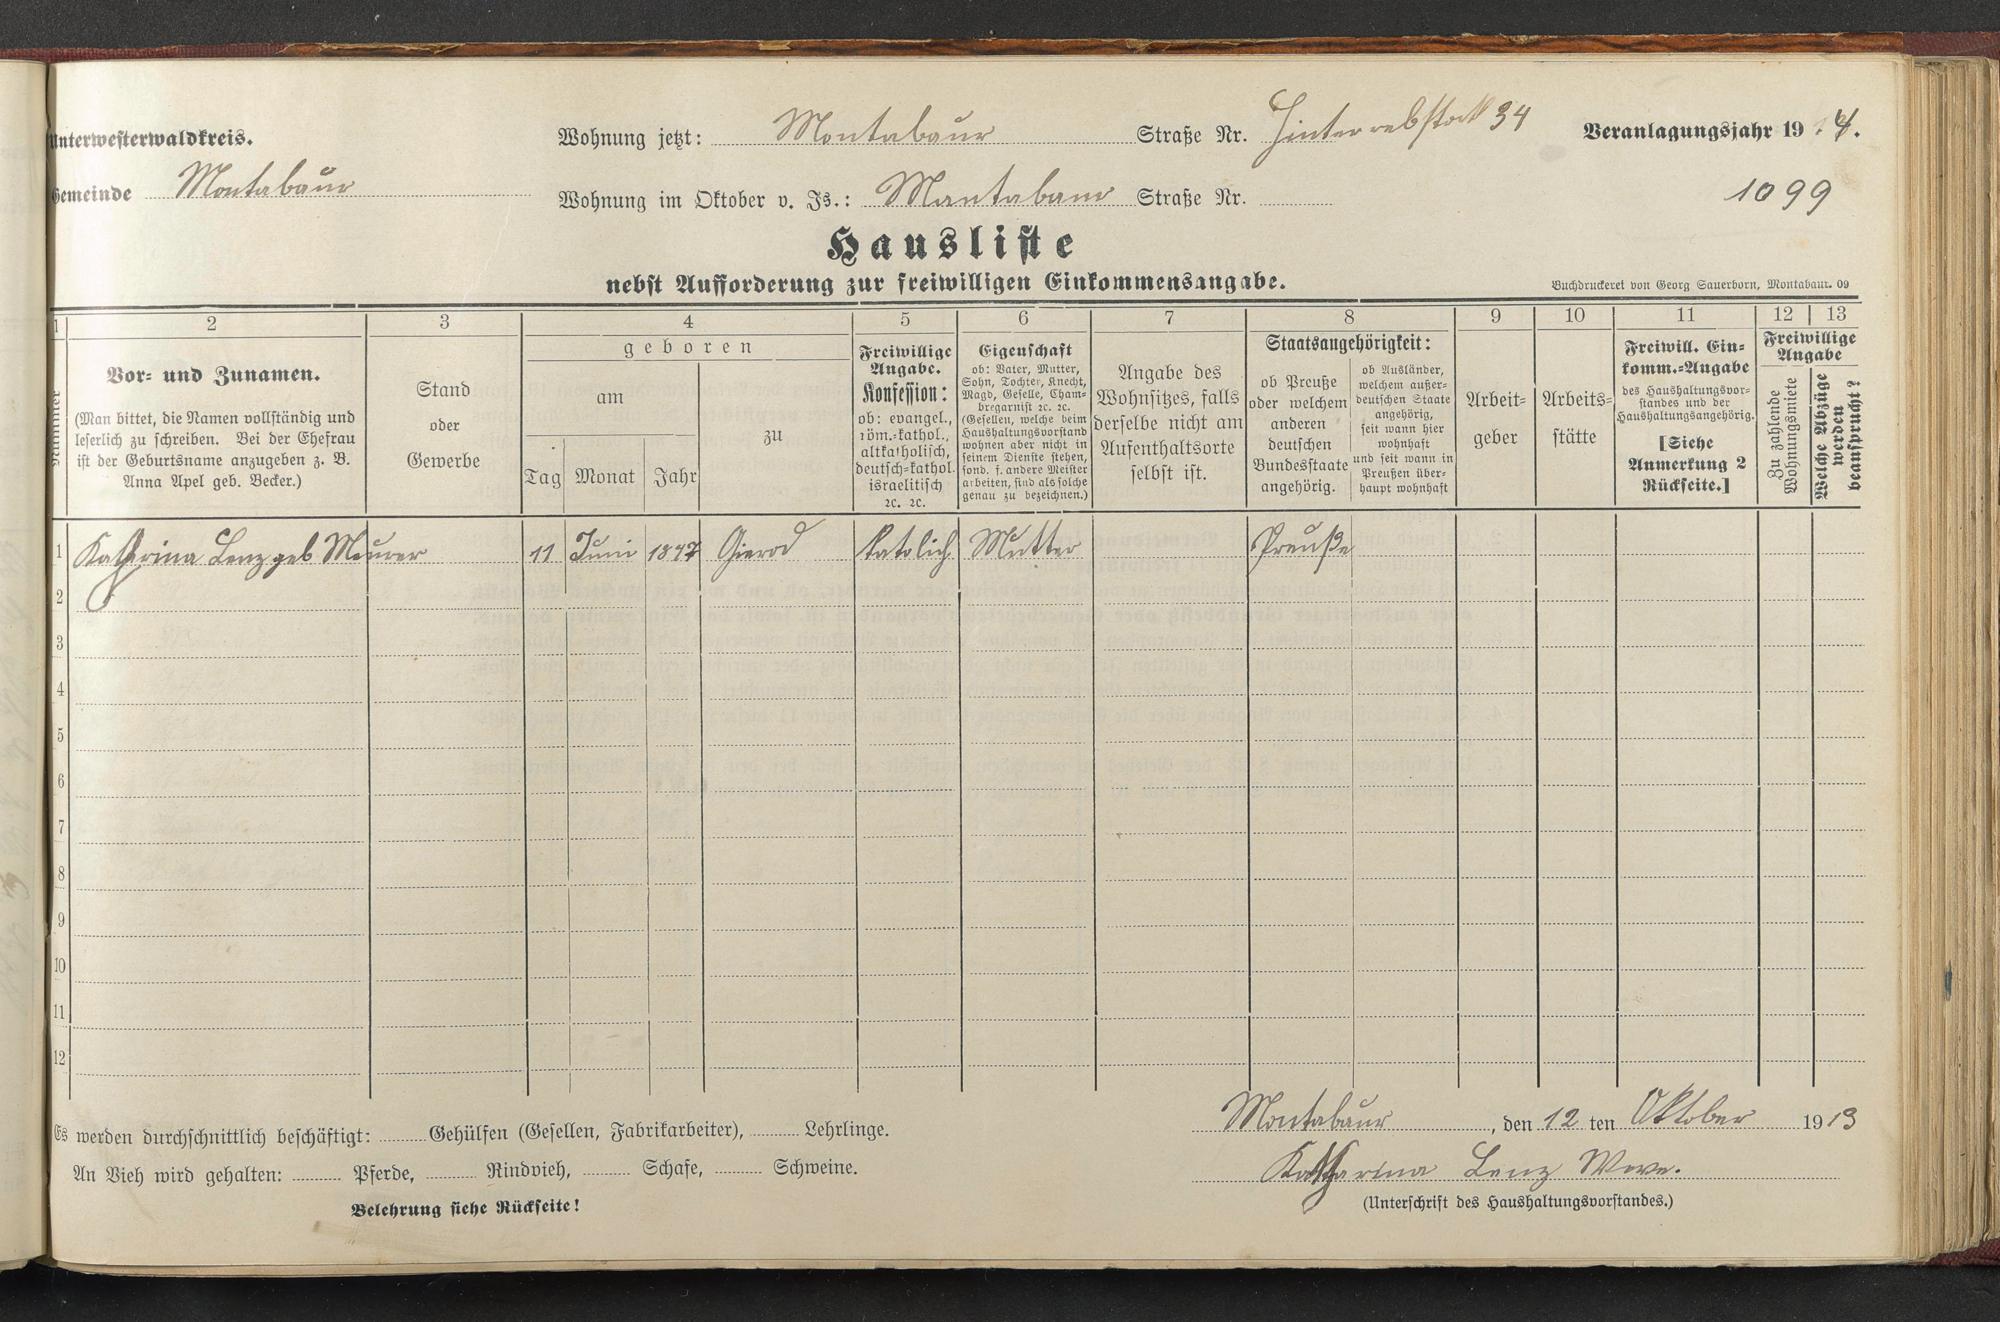 Unterwesterwaldkreis.
Wohnung jetzt: Montabaur Straße Nr. Hinterrebstock 34
Veranlagungsjahr 1914.
Gemeinde Montabaur
Wohnung im Oktober v. Js.: Montabaur Straße Nr.
1099
Hausliste
nebst Aufforderung zur freiwilligen Einkommensangabe.
Buchdruckerei von Georg Sauerborn, Montabaur. 09
1 2 3 4 5 6 7 8 9 10 11 12 13
Nummer
Vor- und Zunamen.
(Man bittet, die Namen vollständig und
leserlich zu schreiben. Bei der Ehefrau
ist der Geburtsname anzugeben z. B.
Anna Apel geb. Becker.)
Stand
oder
Gewerbe
geboren
am
Tag Monat Jahr
zu
Freiwillige
Angabe.
Konfession:
ob: evangel.,
röm.-kathol.,
altkatholisch,
deutsch-kathol.
israelitisch
ec. ec.
Eigenschaft
ob: Vater, Mutter,
Sohn, Tochter, Knecht,
Magd, Geselle, Cham-
bregarnist ec. ec.
(Gesellen, welche beim
Haushaltungsvorstand
wohnen aber nicht in
seinem Dienste stehen,
sond. f. andere Meister
arbeiten, sind als solche
genau zu bezeichnen.)
Angabe des
Wohnsitzes, falls
derselbe nicht am
Aufenthaltsorte
selbst ist.
Staatsangehörigkeit:
ob Preuße
oder welchem
anderen
deutschen
Bundesstaate
angehörig.
ob Ausländer,
welchem außer-
deutschen Staate
angehörig,
seit wann hier
wohnhaft
und seit wann in
Preußen über-
haupt wohnhaft
Arbeit-
geber
Arbeits-
stätte
Freiwill. Ein-
komm.-Angabe
des Haushaltungsvor-
standes und der
Haushaltungsangehörig.
[Siehe
Anmerkung 2
Rückseite.]
Freiwillige
Angabe
Zu zahlende
Wohnungsmiete
Welche Abzüge
werden
beansprucht?
1 Katharina Lenz geb Meurer 11 Juni 1847 Gierod katolich Mutter Preuße
2
3
4
5
6
7
8
9
10
11
12
Montabaur, den 12 ten Oktober 1913
Es werden durchschnittlich beschäftigt: Gehülfen (Gesellen, Fabrikarbeiter), Lehrlinge.
Katharina Lenz Wwe.
An Vieh wird gehalten: Pferde, Rindvieh, Schafe, Schweine.
(Unterschrift des Haushaltungsvorstandes.)
Belehrung siehe Rückseite!